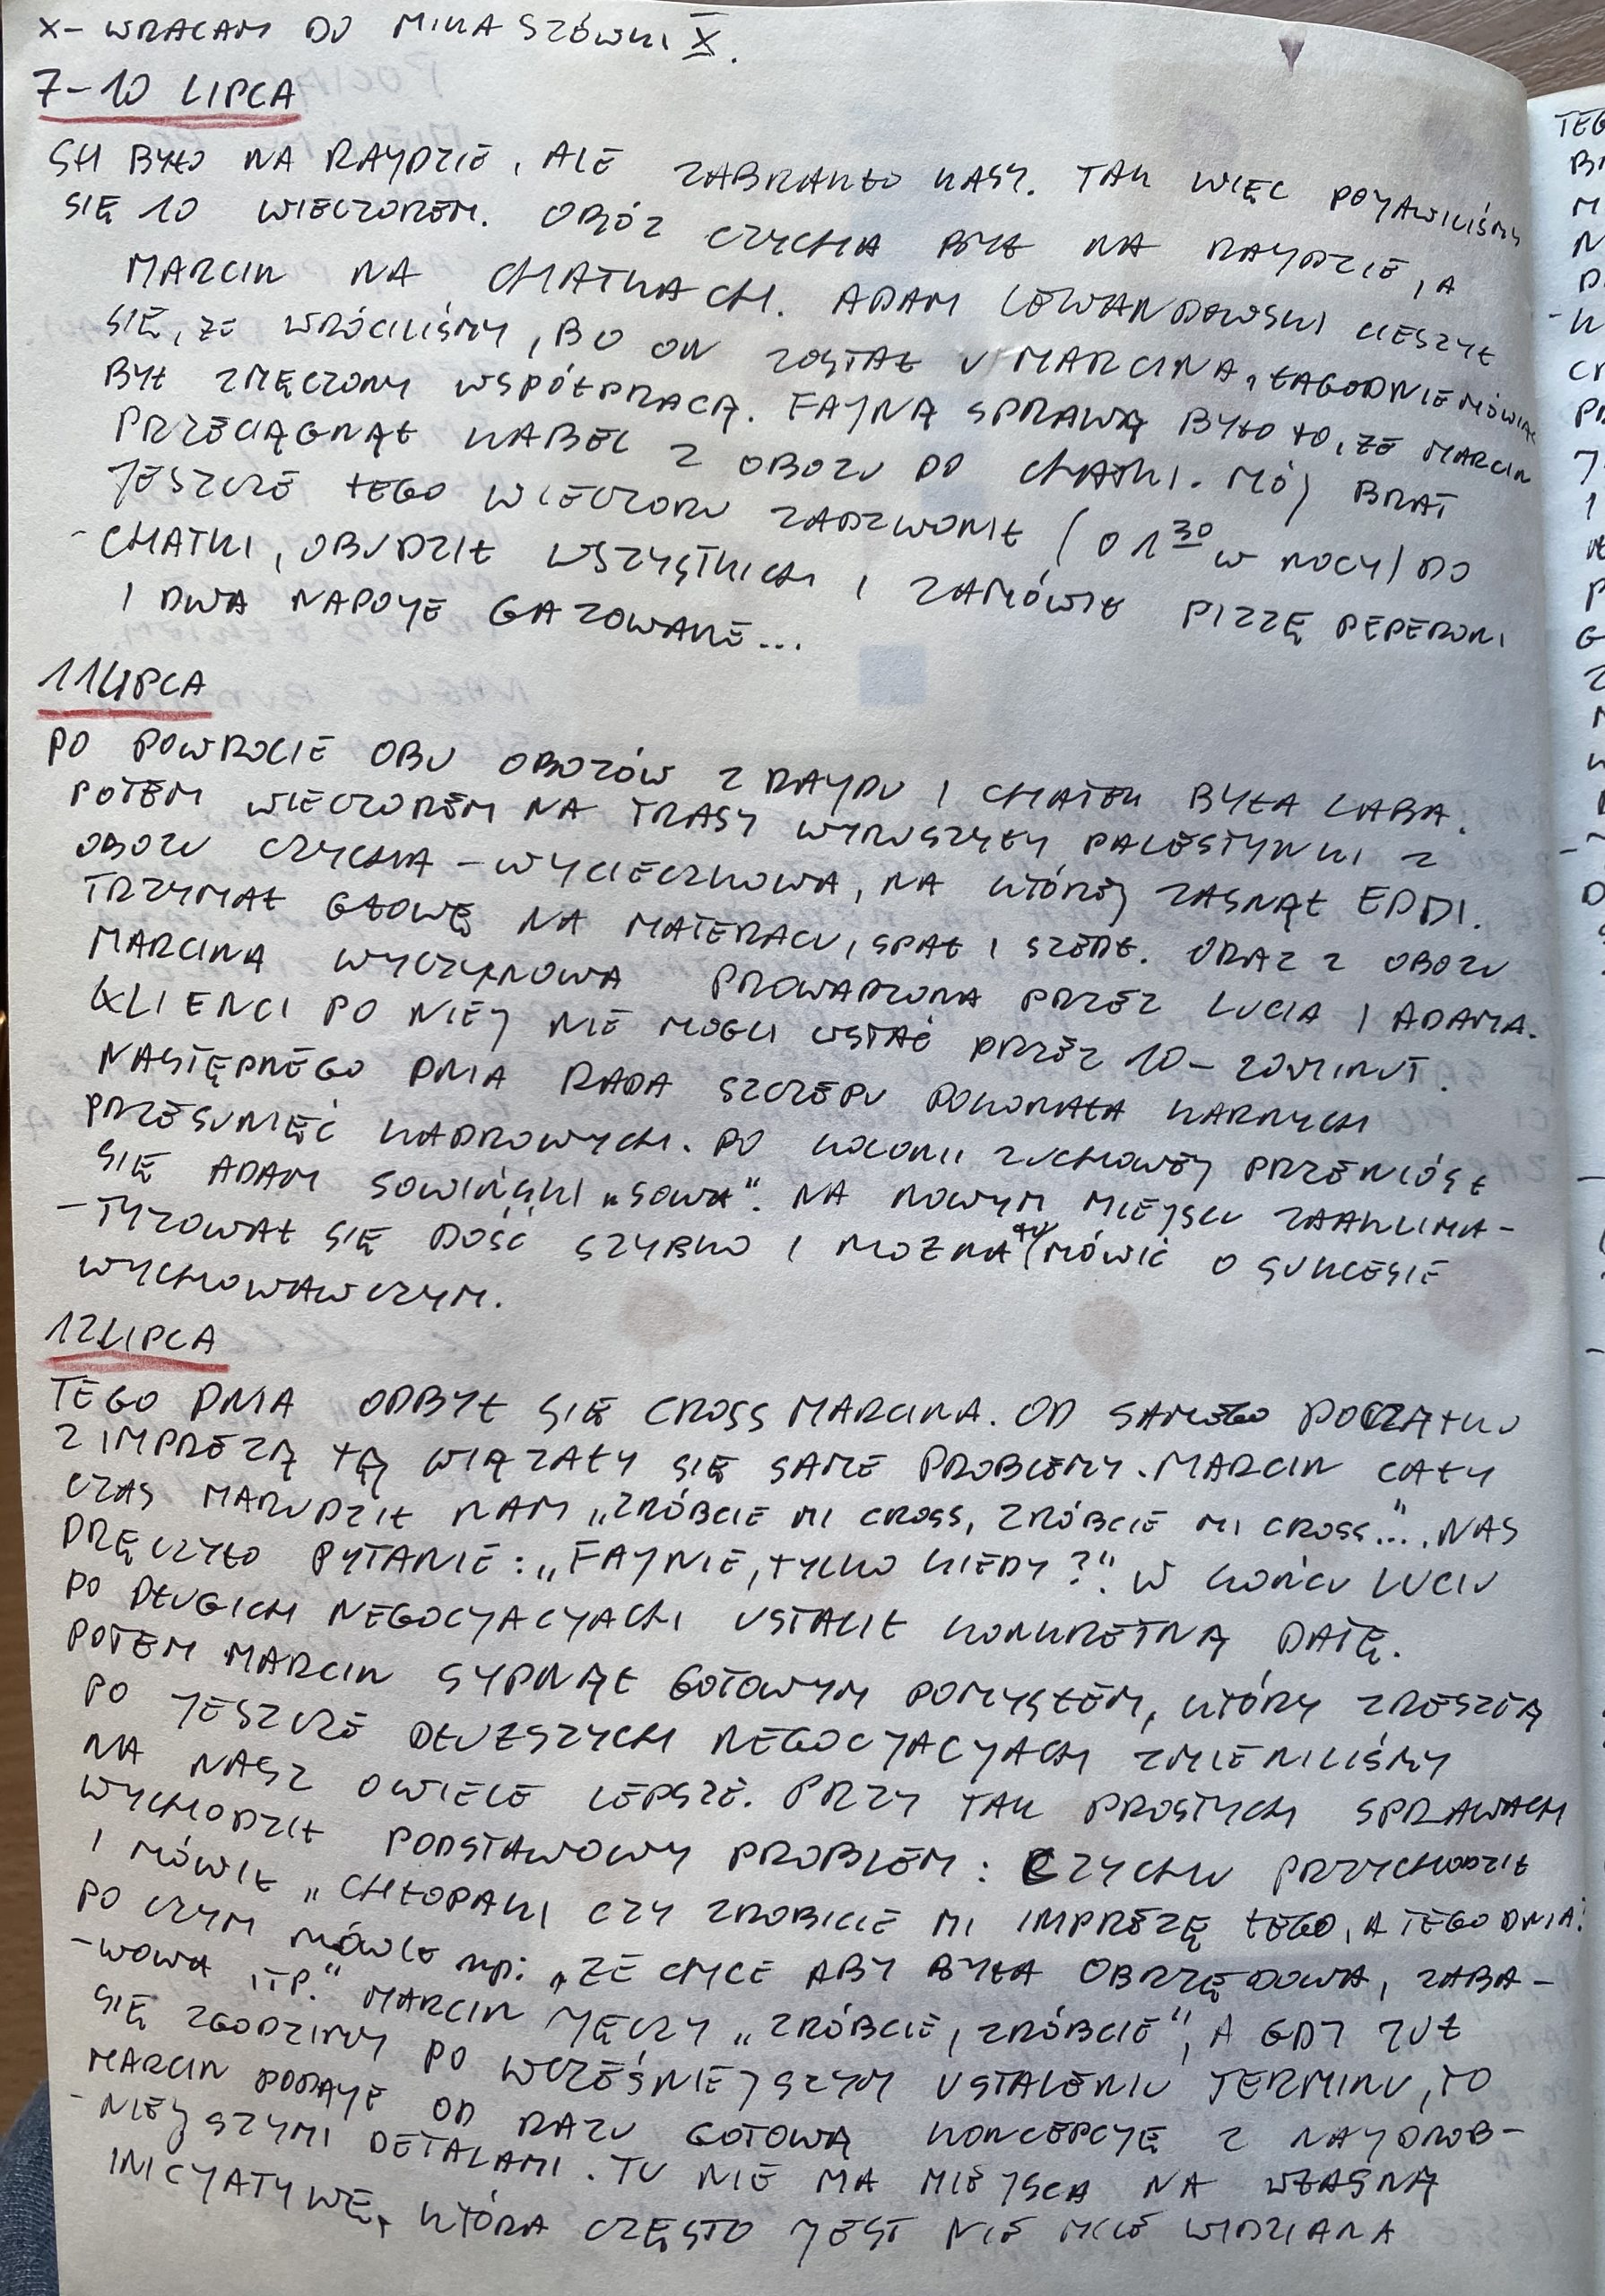 X- WRACAM DO MIKASZÓWKI X.
7-10 LIPCA
SH BYŁO NA RAYDZIE, ALE ZABRAKŁO KASY. TAK WIĘC POYAWILIŚMY
SIĘ 10 WIECZOREM. OBÓZ CZYCHA BYŁ NA RAYDZIE, A
MARCIN NA CHATKACH. ADAM LEWANDOWSKI CIESZYŁ
SIĘ, ZE WRÓCILIŚMY, BO ON ZOSTAŁ U MARCINA, ŁAGODNIE MÓWIĄC
BYŁ ZMĘCZONY WSPÓŁPRACĄ. FAYNĄ SPRAWĄ BYŁO TO, ZE MARCIN
PRZECIĄGNĄŁ KABEL Z OBOZU DO CHATKI. MÓJ BRAT
JESZCZE TEGO WIECZORU ZADZWONIŁ (O 1 30 W NOCY) DO
-CHATKI, OBUDZIŁ WSZYSTKICH I ZAMÓWIŁ PIZZĘ PEPERONI
I DWA NAPOYE GAZOWANE...
11 LIPCA
PO POWROCIE OBU OBOZÓW Z RAYDU I CHATEK BYŁA LABA.
POTEM WIECZOREM NA TRASY WYRUSZYŁY PALESTYNKI Z
OBOZU CZYCHA - WYCIECZKOWA, NA KTÓREJ ZASNĄŁ EDDI.
TRZYMAŁ GŁOWĘ NA MATERACU, SPAŁ I SZEDŁ. ORAZ Z OBOZU
MARCINA WYCZYNOWA PROWADZONA PRZEZ LUCIA I ADAMA.
KLIENCI PO NIEJ NIE MOGLI WSTAĆ PRZEZ 10-20 MINUT.
NASTĘPNEGO DNIA RADA SZCZEPU DOKONAŁA KARNYCH
PRZESUNIĘĆ KADROWYCH. PO KOLONII ZUCHOWEJ PRZENIÓSŁ
SIĘ ADAM SOWIŃSKI „SOWA". NA NOWYM MIEJSCU ZAAKLIMA-
-TYZOWAŁ SIĘ DOŚĆ SZYBKO I MOZNA TU MÓWIĆ O SUKCESIE
WYCHOWAWCZYM.
12 LIPCA
TEGO DNIA ODBYŁ SIĘ CROSS MARCINA. OD SAMEGO POCZĄTKU
Z IMPREZĄ TĄ WIĄZAŁY SIĘ SAME PROBLEMY. MARCIN CAŁY
CZAS MARUDZIŁ NAM „ZRÓBCIE MI CROSS, ZRÓBCIE MI CROSS...". NAS
DRĘCZYŁO PYTANIE: „FAJNIE, TYLKO KIEDY?". W KOŃCU LUCIU
PO DŁUGICH NEGOCYACYACH USTALIŁ KONKRETNĄ DATĘ.
POTEM MARCIN SYPNĄŁ GOTOWYM POMYSŁEM, KTÓRY ZRESZTĄ
PO JESZCZE DŁUZSZYCH NEGOCYACYACH ZMIENILIŚMY
NA NASZ O WIELE LEPSZE. PRZY TAK PROSTYCH SPRAWACH
WYCHODZIŁ PODSTAWOWY PROBLEM: CZYCHU PRZYCHODZIŁ
I MÓWIŁ „CHŁOPAKI CZY ZROBICIE MI IMPREZĘ TEGO, A TEGO DNIA:
PO CZYM MÓWIŁ np: „ZE CHCE ABY BYŁA OBRZĘDOWA, ZABA-
-WOWA ITP." MARCIN JĘCZY „ZRÓBCIE, ZRÓBCIE", A GDY JUZ
SIĘ ZGODZIMY PO WCZEŚNIEJSZYM USTALENIU TERMINU, TO
MARCIN PODAJE OD RAZU GOTOWĄ KONCEPCYĘ Z NAYDROB-
-NIEJSZYMI DETALAMI. TU NIE MA MIEJSCA NA WŁASNĄ
INICYATYWĘ, KTÓRA CZĘSTO JEST NIE MILE WIDZIANA